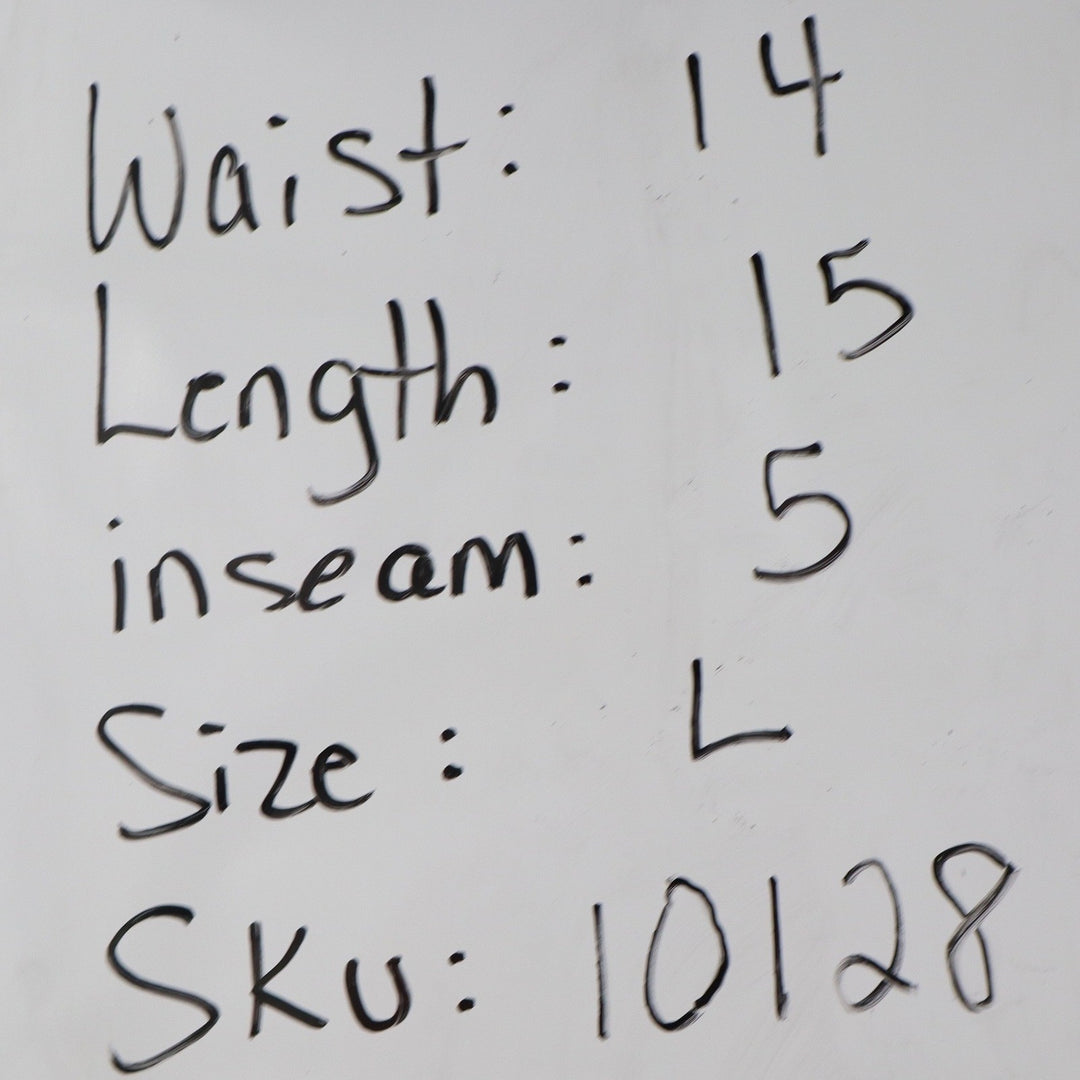 Waist: 14
Length: 15
inseam: 5
Size: L
SKU: 10128